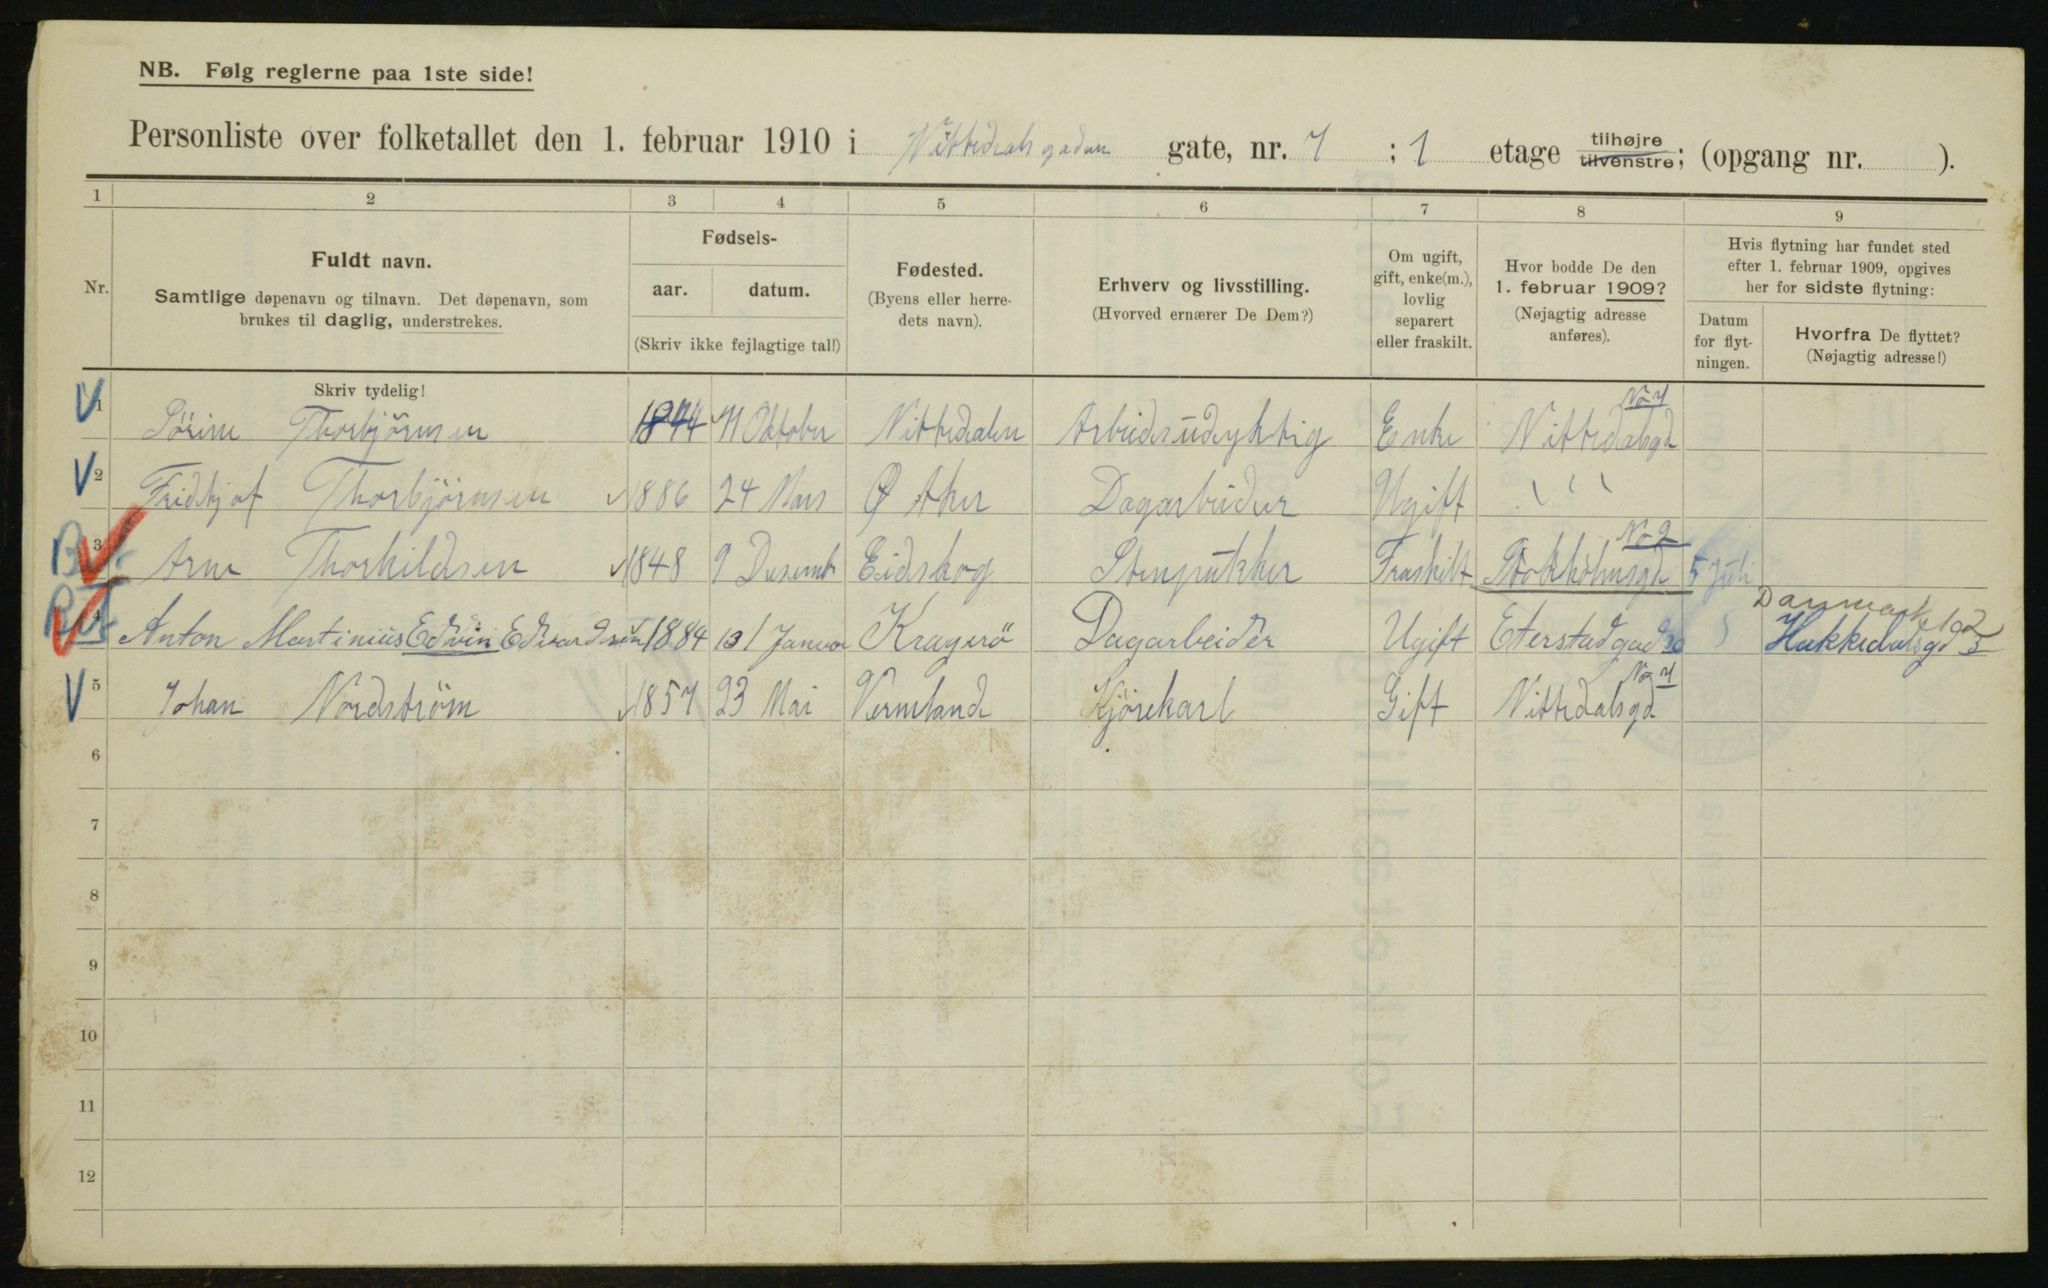 NB. Følg reglerne paa 1ste side!
Personliste over folketallet den 1. februar 1910 i Nittedalsgaden gate, nr. 7 ; 1 etage tilhøjre tilvenstre; (opgang nr. ).
1 2 3 4 5 6 7 8 9
Nr.
Fuldt navn.
Samtlige døpenavn og tilnavn. Det døpenavn, som
brukes til daglig, understrekes.
Skriv tydelig!
Fødsels-
aar. datum.
(Skriv ikke fejlagtige tal!)
Fødested.
(Byens eller herre-
dets navn).
Erhverv og livsstilling.
(Hvorved ernærer De Dem?)
Om ugift,
gift, enke(m.),
lovlig
separert
eller fraskilt.
Hvor bodde De den
1. februar 1909?
(Nøjagtig adresse
anføres).
Hvis flytning har fundet sted
efter 1. februar 1909, opgives
her for sidste flytning:
Datum
for flyt-
ningen.
Hvorfra De flyttet?
(Nøjagtig adresse!)
No 7
1 Sörine Thorbjörnsen 1844 11 Oktober Nittedalen Arbeidsudyktig Enke Nittedalsgd
2 Fridhjof Thorbjörnsen 1886 24 Mars Ø Aker Dagarbeider Ugift " " "
No 2
3 Arne Thorkildsen 1848 9 Desembr Eidskog Stenpukker Fraskilt Stokholmsgd 5 Juli
Danmark
4 Anton Martinius Edvin Edvardsen 1884 1 Januar Kragerö Dagarbeider Ugift Eterstadgad Hakkedalsgd 3
No 7
5 Johan Nordström 1857 23 Mai Vermland Kjörekarl Gift Nittedalsgd
6
7
8
9
10
11
12